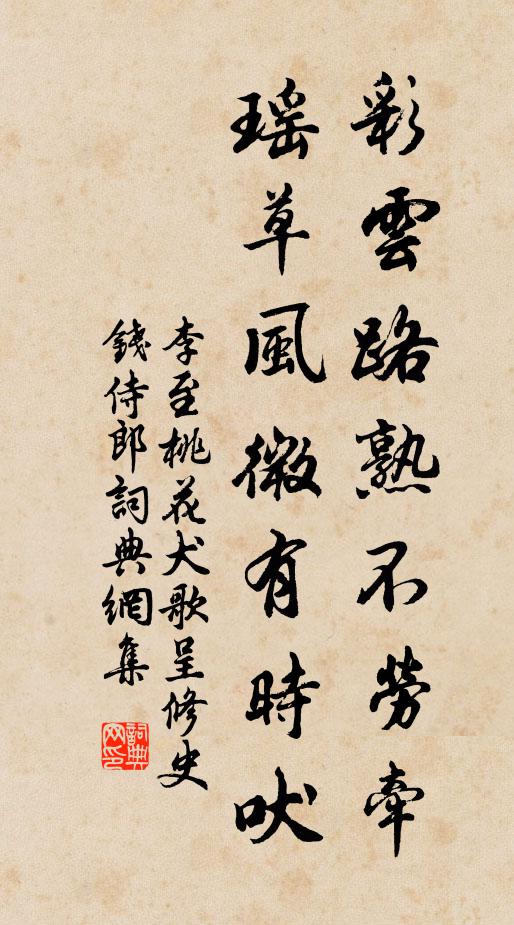 彩雲路熟不勞牽
瑶草風微有時吠
李至桃花犬歌呈修史
錢侍郎詞典網集
詞典网印